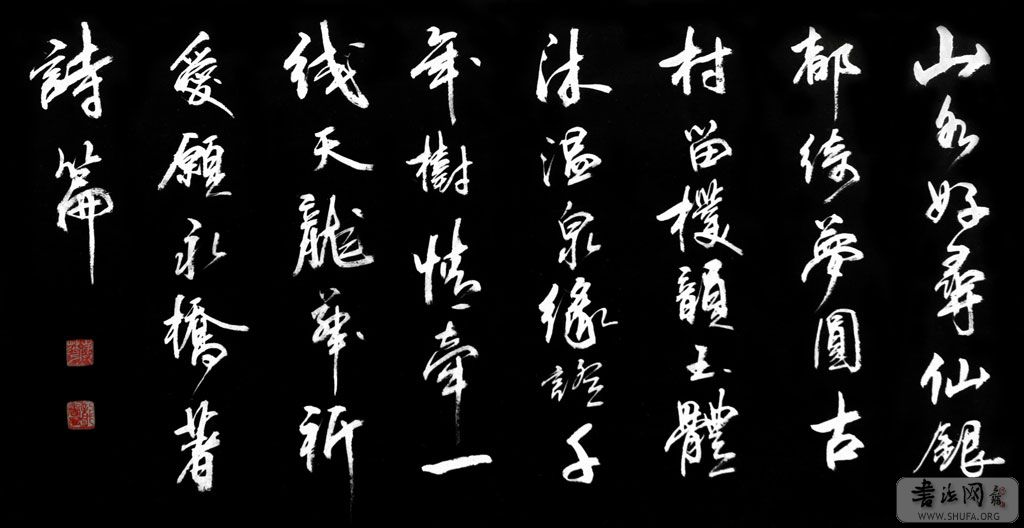 山水好尋仙銀
都綺夢圓古
村留樸韻玉體
沐溫泉緣證千
年樹情牽一
线天龍華祈
愛願永橋著
詩篇
書法网
WWW.SHUFA.ORG